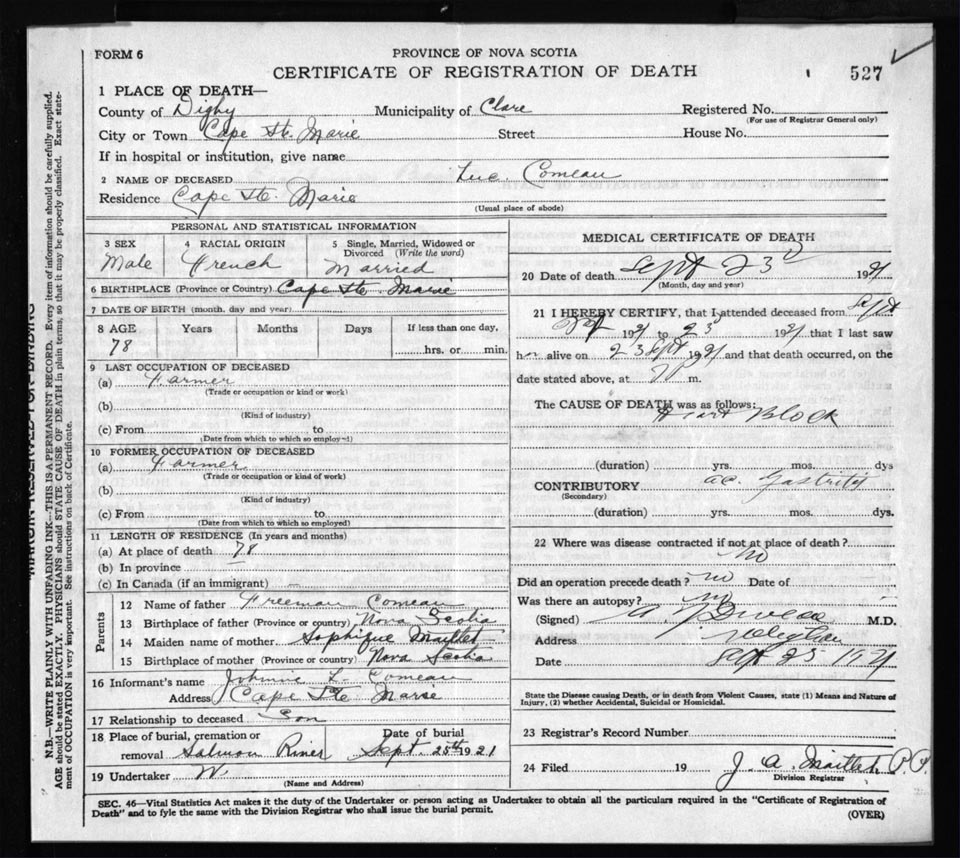 FORM 6
PROVINCE OF NOVA SCOTIA
CERTIFICATE OF REGISTRATION OF DEATH
527
1 PLACE OF DEATH—
County of Digby Municipality of Clare Registered No.
(For use of Registrar General only)
City or Town Cape Ste. Marie Street House No.
If in hospital or institution, give name
2 NAME OF DECEASED Luc Comeau
Residence Cape Ste. Marie
(Usual place of abode)
PERSONAL AND STATISTICAL INFORMATION
3 SEX 4 RACIAL ORIGIN 5 Single, Married, Widowed or Divorced (Write the word)
Male French Married
6 BIRTHPLACE (Province or Country) Cape Ste. Marie
7 DATE OF BIRTH (month, day and year)
8 AGE Years Months Days If less than one day,
78
hrs. or min.
9 LAST OCCUPATION OF DECEASED
(a) Farmer
(Trade or occupation or kind or work)
(b)
(Kind of industry)
(c) From to
(Date from which to which so employed)
10 FORMER OCCUPATION OF DECEASED
(a) Farmer
(Trade or occupation or kind of work)
(b)
(Kind of industry)
(c) From to
(Date from which to which so employed)
11 LENGTH OF RESIDENCE (In years and months)
(a) At place of death 78
(b) In province
(c) In Canada (if an immigrant) —
Parents
12 Name of father Freeman Comeau
13 Birthplace of father (Province or country) Nova Scotia
14 Maiden name of mother Sophique Maillet
15 Birthplace of mother (Province or country) Nova Scotia
16 Informant's name Johnnie L. Comeau
Address Cape Ste Marie
17 Relationship to deceased Son
18 Place of burial, cremation or removal Salmon River
Date of burial Sept. 25th 1921
19 Undertaker
(Name and Address)
MEDICAL CERTIFICATE OF DEATH
20 Date of death Sept 23d 1921
(Month, day and year)
21 I HEREBY CERTIFY, that I attended deceased from Sept
1921 to 23d 1921 that I last saw
h alive on 23 Sept 1921 and that death occurred, on the
date stated above, at m.
The CAUSE OF DEATH was as follows:
Heart Block
(duration) yrs. mos. dys
CONTRIBUTORY ac. Gastritis
(Secondary)
(duration) yrs. mos. dys.
22 Where was disease contracted if not at place of death?
no
Did an operation precede death? no Date of
Was there an autopsy? no
(Signed) M.D.
Address
Date Sept 25 1921
State the Disease causing Death, or in death from Violent Causes, state (1) Means and Nature of
Injury, (2) whether Accidental, Suicidal or Homicidal.
23 Registrar's Record Number
24 Filed 19 J. A. Maillet P.P.
Division Registrar
SEC. 46—Vital Statistics Act makes it the duty of the Undertaker or person acting as Undertaker to obtain all the particulars required in the "Certificate of Registration of
Death" and to fyle the same with the Division Registrar who shall issue the burial permit.
(OVER)
MARGIN RESERVED FOR BINDING
N.B.—WRITE PLAINLY WITH UNFADING INK—THIS IS A PERMANENT RECORD. Every item of information should be carefully supplied.
AGE should be stated EXACTLY. PHYSICIANS should STATE CAUSE OF DEATH in plain terms, so that it may be properly classified. Exact state-
ment of OCCUPATION is very important. See instructions on back of Certificate.